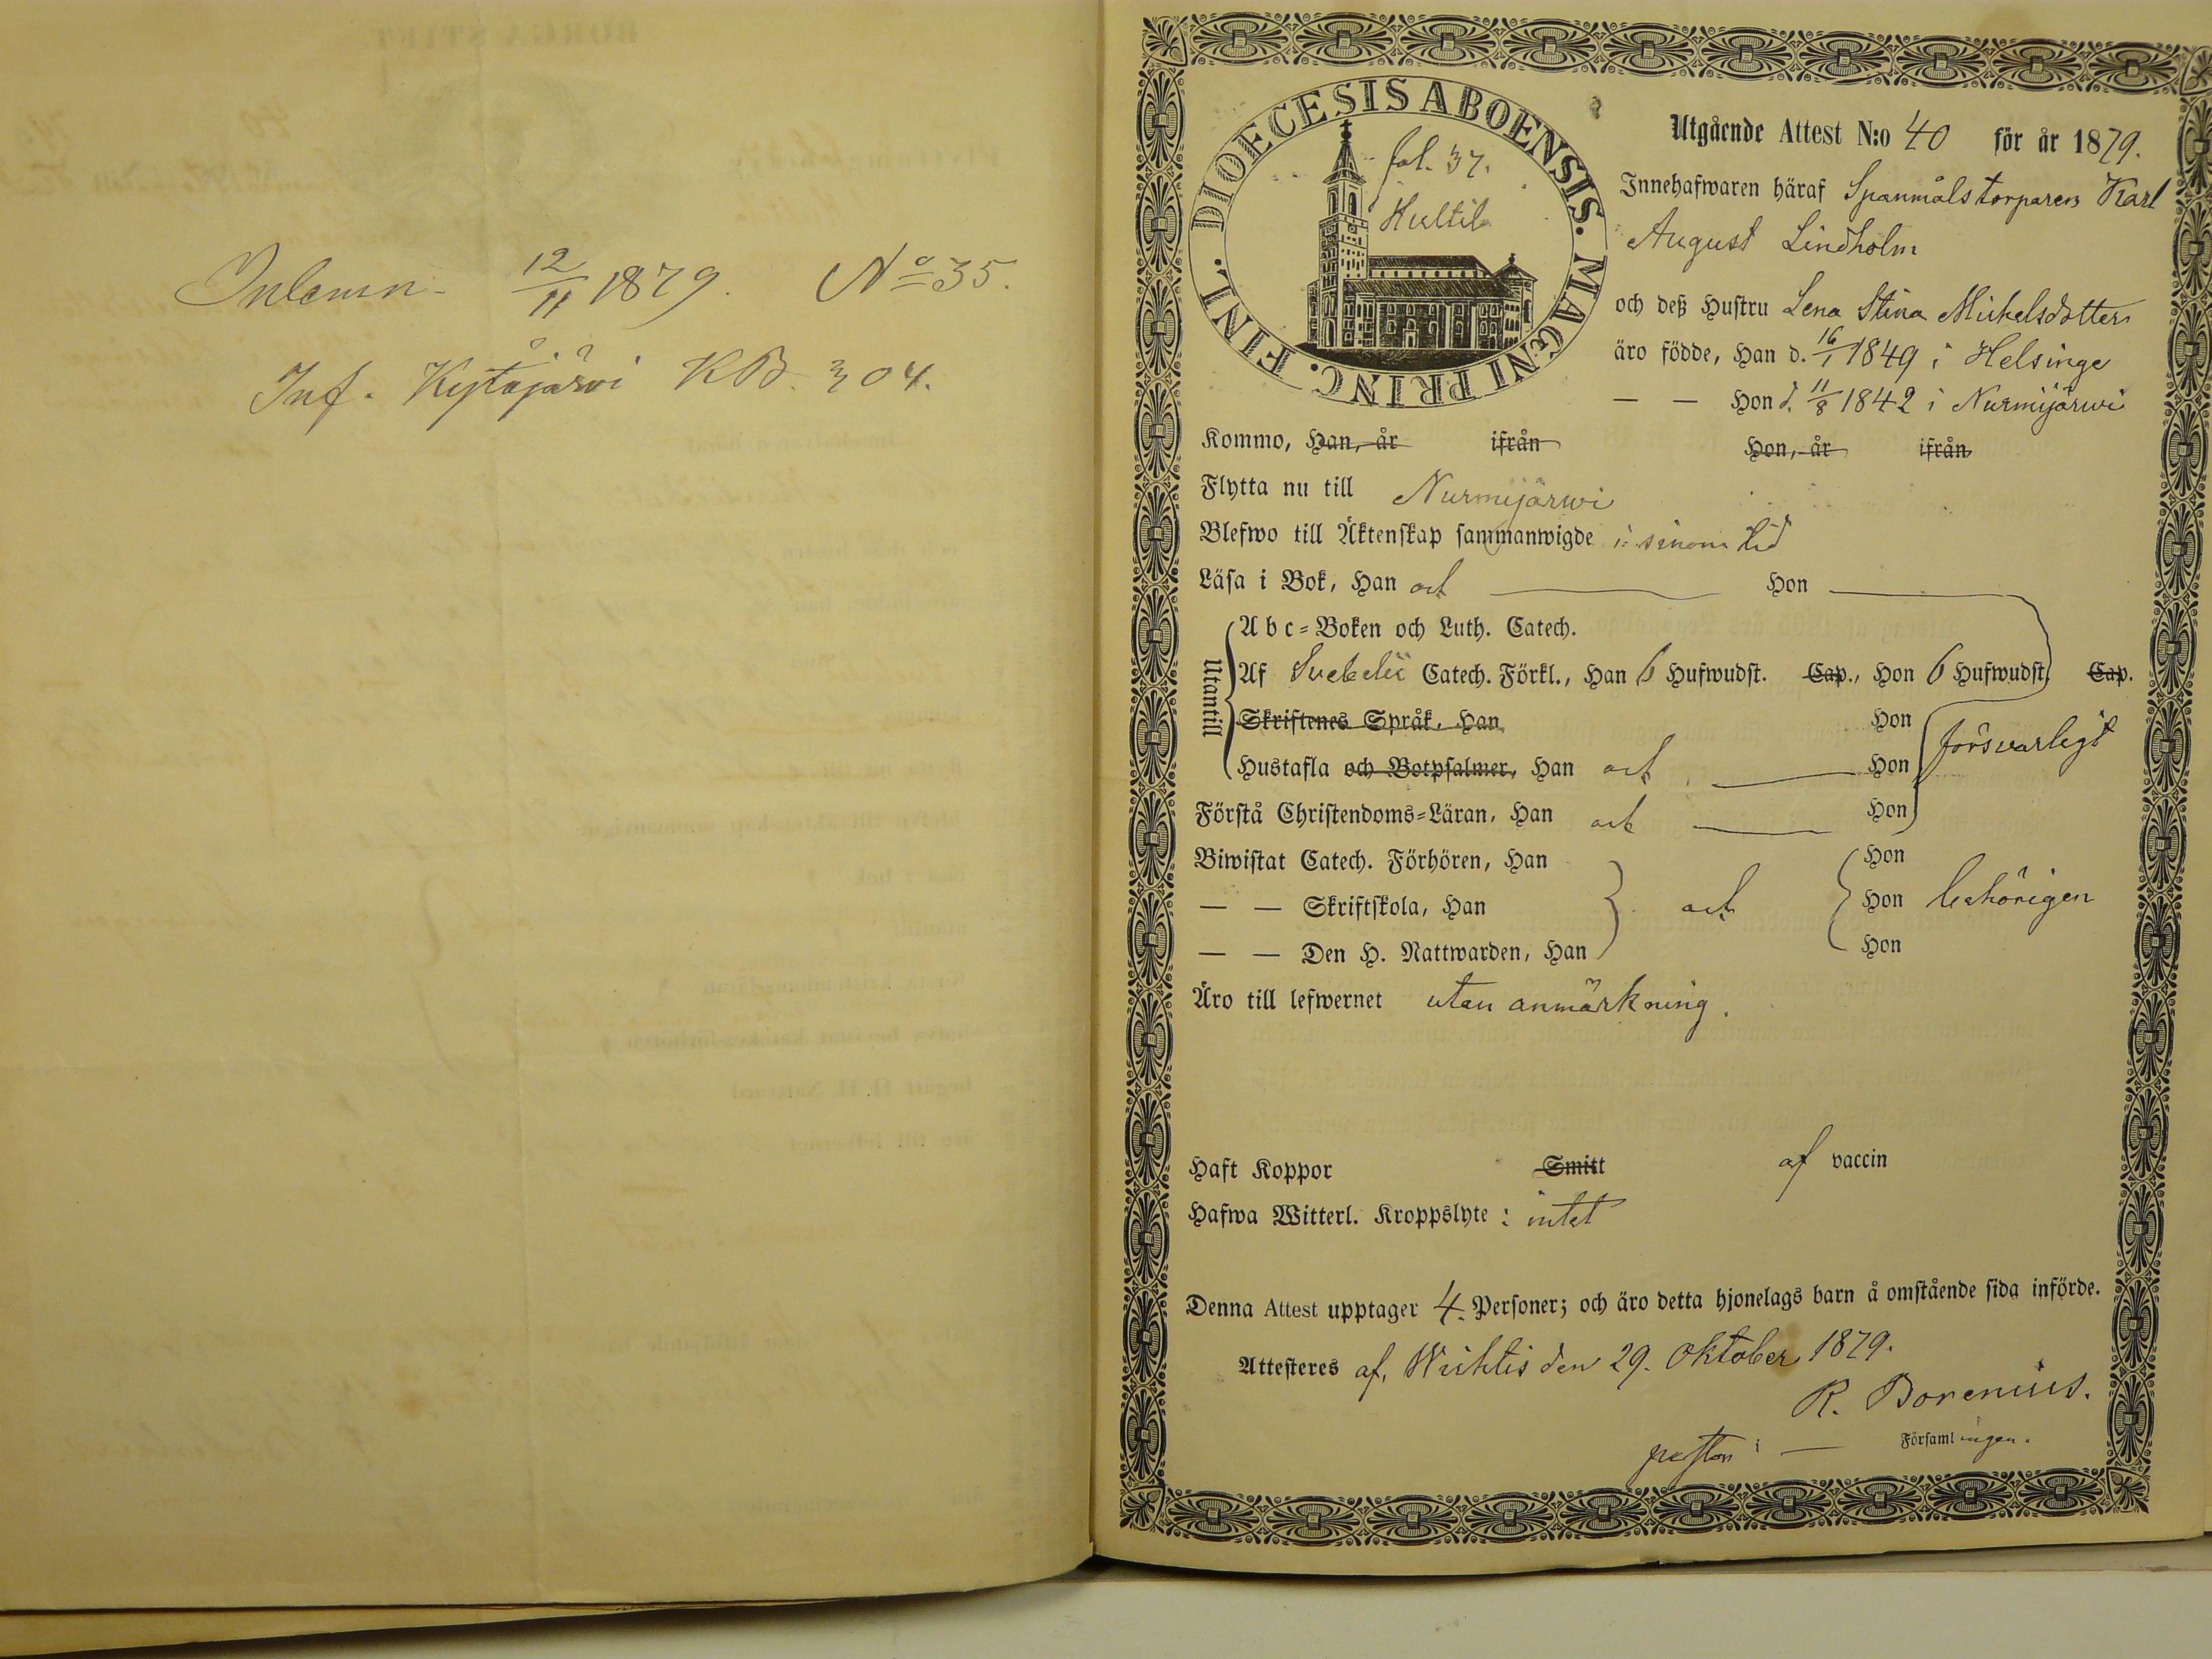 Inlemn. 12/11 1879. No 35.
Inf. Kytäjärvi KB. 304.
DIOECESIS ABOENSIS. MAGNI PRINC. FINL.
fol. 37.
Utgående Attest N:o 40 för år 1879.
Innehafwaren häraf Spanmålstorparen Karl
August Lindholm
och deß Hustru Lena Stina Mickelsdotter
äro födde, Han d. 16/1 1849 i Helsinge
— — Hon d. 11/8 1842 i Nurmijärwi
Kommo, Han, år ifrån Hon, år ifrån
Flytta nu till Nurmijärwi
Blefwo till Äktenskap sammanwigde i sinom tid
Läsa i Bok, Han och Hon
Utantill
Abc-Boken och Luth. Catech.
Af Svebelii Catech. Förkl., Han 6 Hufwudst. Cap., Hon 6 Hufwudst. Cap.
Skriftenes Språk, Han Hon
försvarligt
Hustafla och Botpsalmer, Han och Hon
Förstå Christendoms-Läran, Han och Hon
Biwistat Catech. Förhören, Han Hon
— — Skriftskola, Han och Hon behörigen
— — Den H. Nattwarden, Han Hon
Äro till lefwernet utan anmärkning.
Haft Koppor Smitt af vaccin
Hafwa Witterl. Kroppslyte: intet
Denna Attest upptager 4. Personer; och äro detta hjonelags barn å omstående sida införde.
Attesteres af, Wichtis den 29. Oktober 1879.
R. Borenius.
pastor i — Församlingen.